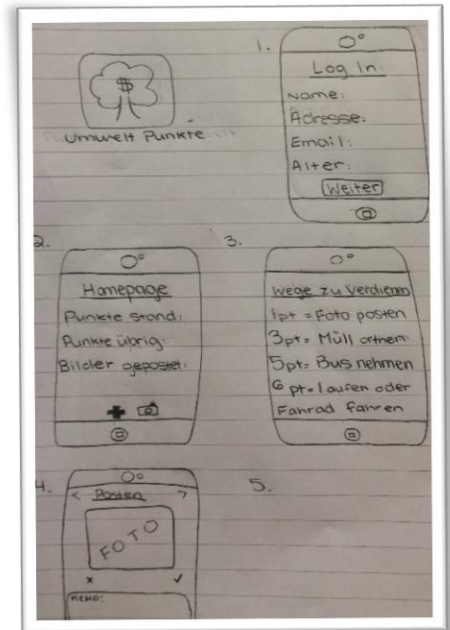 $
Umwelt Punkte
1.
Log In:
Name:
Adresse:
Email:
Alter:
Weiter
2.
Homepage
Punkte stand:
Punkte übrig:
Bilder gepostet:
3.
Wege zu Verdienen
1pt = Foto posten
3pt = Müll ortnen
5pt = Bus nehmen
6 pt = laufen oder
Fahrad fahren
4.
< Posten >
FOTO
x ✓
memo:
5.